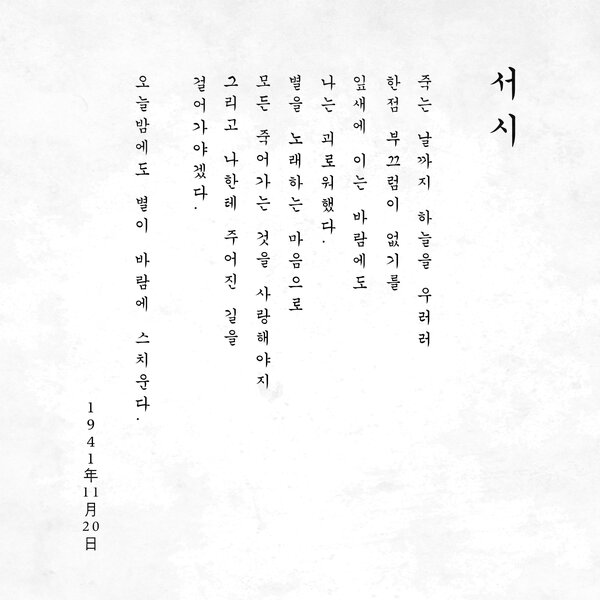 서시
죽는 날까지 하늘을 우러러
한점 부끄럼이 없기를
잎새에 이는 바람에도
나는 괴로워했다.
별을 노래하는 마음으로
모든 죽어가는 것을 사랑해야지
그리고 나한테 주어진 길을
걸어가야겠다.
오늘밤에도 별이 바람에 스치운다.
1941年11月20日